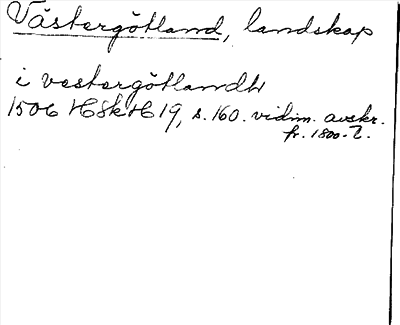 Västergötland, landskap
i vestergötlandh
1506 HSkH 19, s. 160. vidim. avskr.
fr. 1800-t.